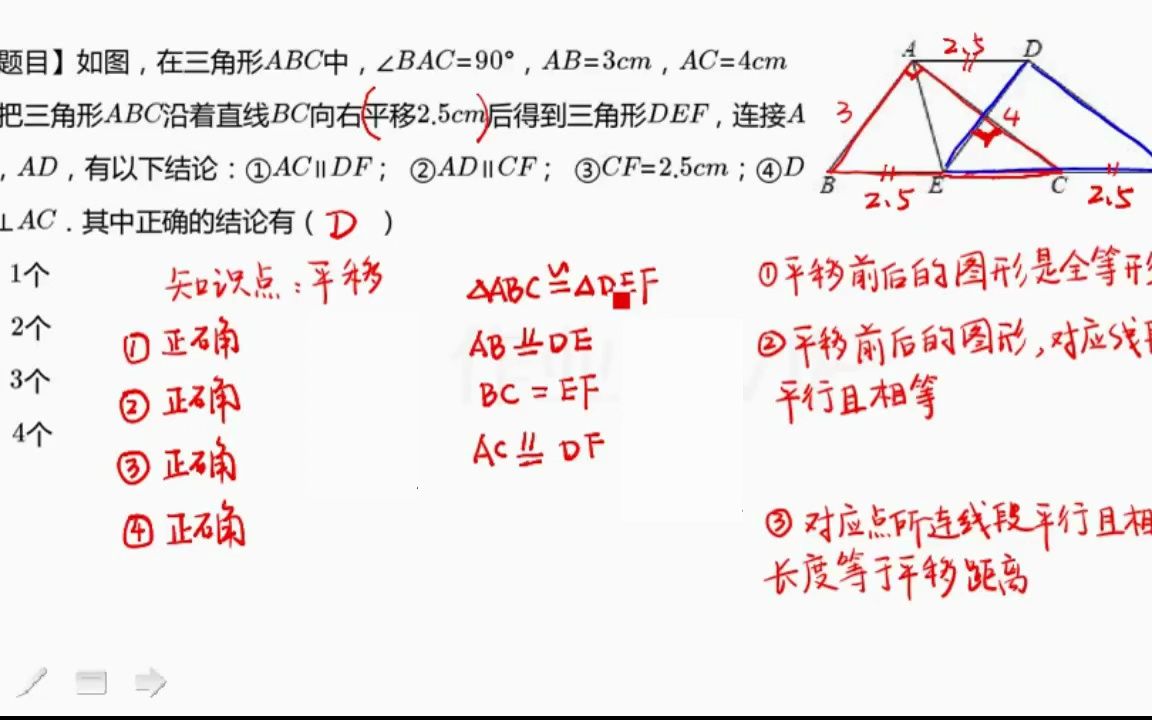 题目】如图，在三角形ABC中，∠BAC=90°，AB=3cm，AC=4cm
把三角形ABC沿着直线BC向右(平移2.5cm)后得到三角形DEF，连接A
，AD，有以下结论：①AC∥DF； ②AD∥CF； ③CF=2.5cm；④D
⊥AC．其中正确的结论有（ D ）
1个
2个
3个
4个
A 2.5 D
3
4
B E C
2.5 2.5
知识点：平移
① 正确
② 正确
③ 正确
④ 正确
△ABC≌△DEF
AB ∥= DE
BC = EF
AC ∥= DF
①平移前后的图形是全等形
②平移前后的图形，对应线段
平行且相等
③ 对应点所连线段平行且相
长度等于平移距离